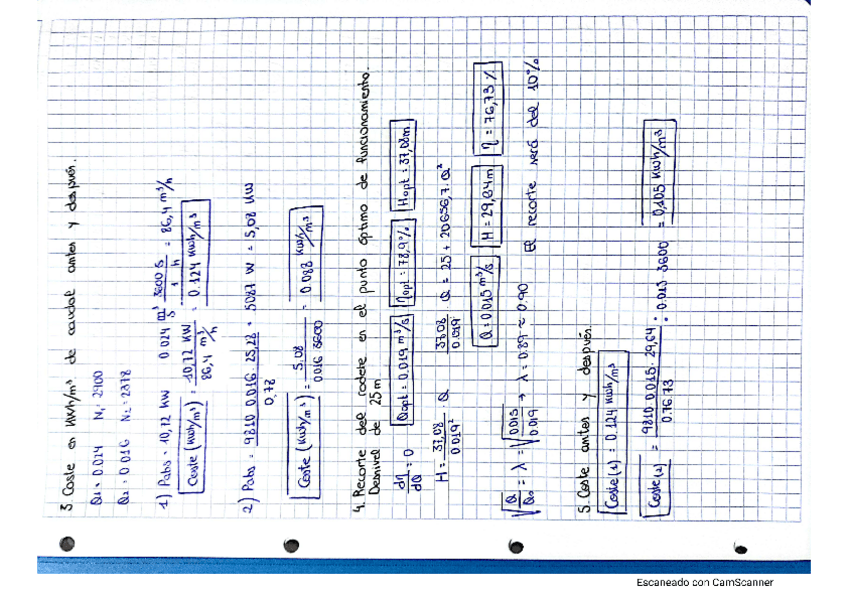 3. Coste en kWh/m³ de caudal antes y después.
Q₁ = 0.024 N₁ = 2900
Q₂ = 0.016 N₂ = 2378
1) Pabs = 10,72 kW 0.024 m³/s · 3600 s/1 h = 86,4 m³/h
Coste (kWh/m³) = 10,72 kW / 86,4 m³/h = 0.124 kWh/m³
2) Pabs = 9810 · 0.016 · 25,28 / 0,78 = 5087 W = 5,08 kW
Coste (kWh/m³) = 5.08 / 0.016 · 3600 = 0.088 kWh/m³
4. Recorte del rodete en el punto óptimo de funcionamiento.
Desnivel de 25 m
dη/dQ = 0 Qopt = 0.019 m³/s ηopt = 78,9% Hopt = 37,08m
H = 37,08/0.019² · Q 37.08/0.019² Q = 25 + 20656,7 · Q²
Q = 0.015 m³/s H = 29,64m η = 76,73 %
√Q/Q₀ = λ = √0.015/0.019 → λ = 0.89 ≈ 0.90 El recorte será del 10%
5. Coste antes y después.
Coste (1) = 0.124 kWh/m³
Coste (2) = 9810 · 0.015 · 29,64 / 0.76.73 : 0.015 · 3600 = 0,105 kWh/m³
Escaneado con CamScanner